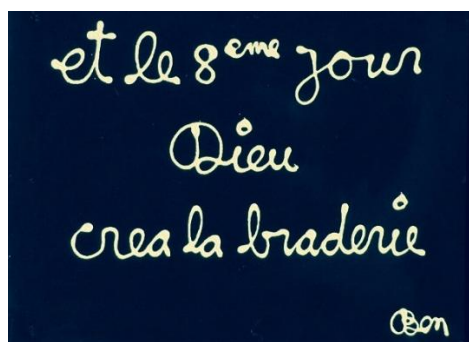 et le 8eme jour
Dieu
crea la braderie
Ben